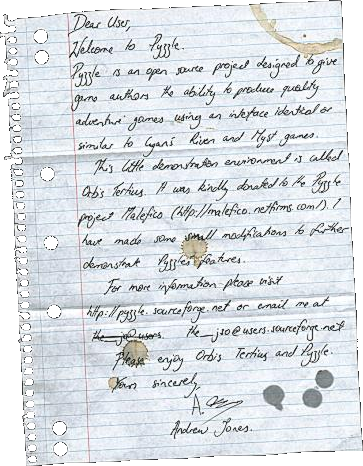 Dear User,
Welcome to Pyzzle.
Pyzzle is an open source project designed to give
game authors the ability to produce quality
adventure games using an interface identical or
similar to Cyan's Riven and Myst games.
This little demonstration environment is called
Orbis Tertius. It was kindly donated to the Pyzzle
project Malefico (http://malefico.netfirms.com/). I
have made some small modifications to further
demonstrate Pyzzle's features.
For more information please visit
http://pyzzle.sourceforge.net or email me at
the_jso@users.sourceforge.net
Please enjoy Orbis Tertius and Pyzzle.
Yours sincerely,
A.
Andrew Jones.